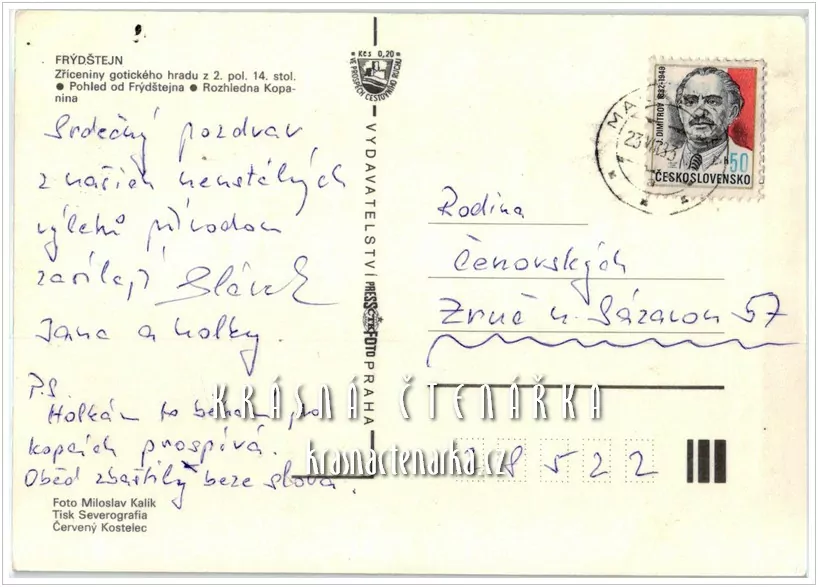 FRÝDŠTEJN
Zříceniny gotického hradu z 2. pol. 14. stol.
● Pohled od Frýdštejna ● Rozhledna Kopa-
nina
Srdečný pozdrav
z našich neustálých
výletů přírodou
zasílají Slávek
Jana a holky.
P.S.
Holkám to běhání po
kopcích prospívá.
Oběd zbaštily beze slova.
Foto Miloslav Kalík
Tisk Severografia
Červený Kostelec
Kčs 0,20
VE PROSPĚCH CESTOVNÍHO RUCHU
VYDAVATELSTVÍ PRESSFOTO PRAHA
ČTK
G. DIMITROV 1882-1949
50
ČESKOSLOVENSKO
23.VII.83
Rodina
Čenovských
Zruč n. Sázavou 57
28522
KRÁSNÁ ČTENÁŘKA
krasnactenarka.cz